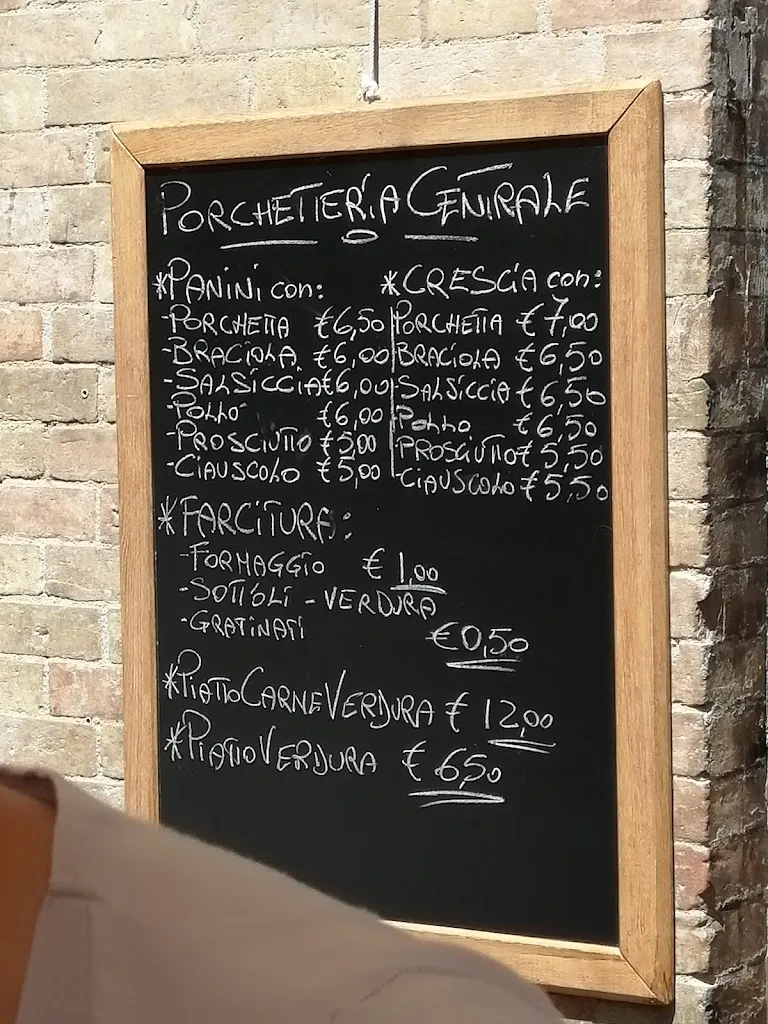 PORCHETTERIA CENTRALE
*PANINI con:
-PORCHETTA €6,50
-BRACIOLA €6,00
-SALSICCIA €6,00
-POLLO €6,00
-PROSCIUTTO €5,00
-CIAUSCOLO €5,00
*CRESCIA con:
PORCHETTA €7,00
BRACIOLA €6,50
SALSICCIA €6,50
POLLO €6,50
PROSCIUTTO €5,50
CIAUSCOLO €5,50
*FARCITURA:
-FORMAGGIO € 1,00
-SOTTOLI - VERDURA
-GRATINATI €0,50
*PIATTO CARNE VERDURA € 12,00
*PIATTO VERDURA € 6,50